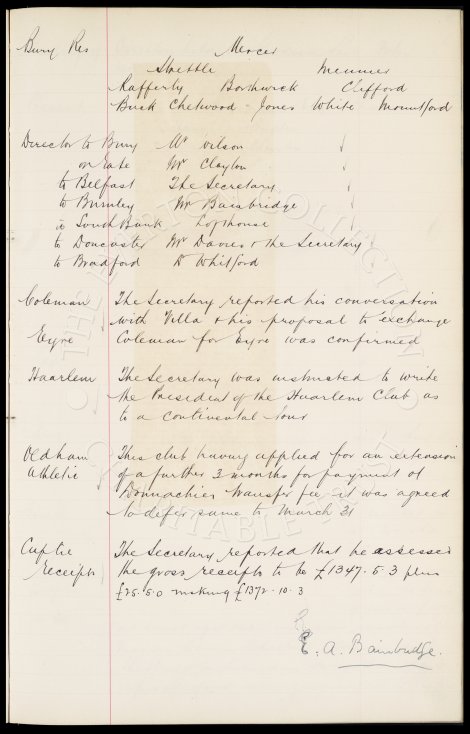 Bury Res Mercer
Strettle Meunier
Rafferty Borthwick Clifford
Buck Chetwood Jones White Mountford
Director to Bury Mr Wilson
on gate Mr Clayton
to Belfast The Secretary
to Burnley Mr Bainbridge
to South Bank Lofthouse
to Doncaster Mr Davies & the Secretary
to Bradford Dr Whitford
Coleman The Secretary reported his conversation
with Villa & his proposal to exchange
Eyre Coleman for Eyre was confirmed
Haarlem The Secretary was instructed to write
the President of the Haarlem Club as
to a continental tour
Oldham This club having applied for an extension
Athletic of a further 3 months for payment of
Donnachies transfer fee it was agreed
to defer same to March 31
Cup tie The Secretary reported that he assessed
receipts the gross receipts to be £1347.5.3 plus
£25.5.0 making £1372.10.3
E. A. Bainbridge.
THE EVERTON COLLECTION CHARITABLE TRUST